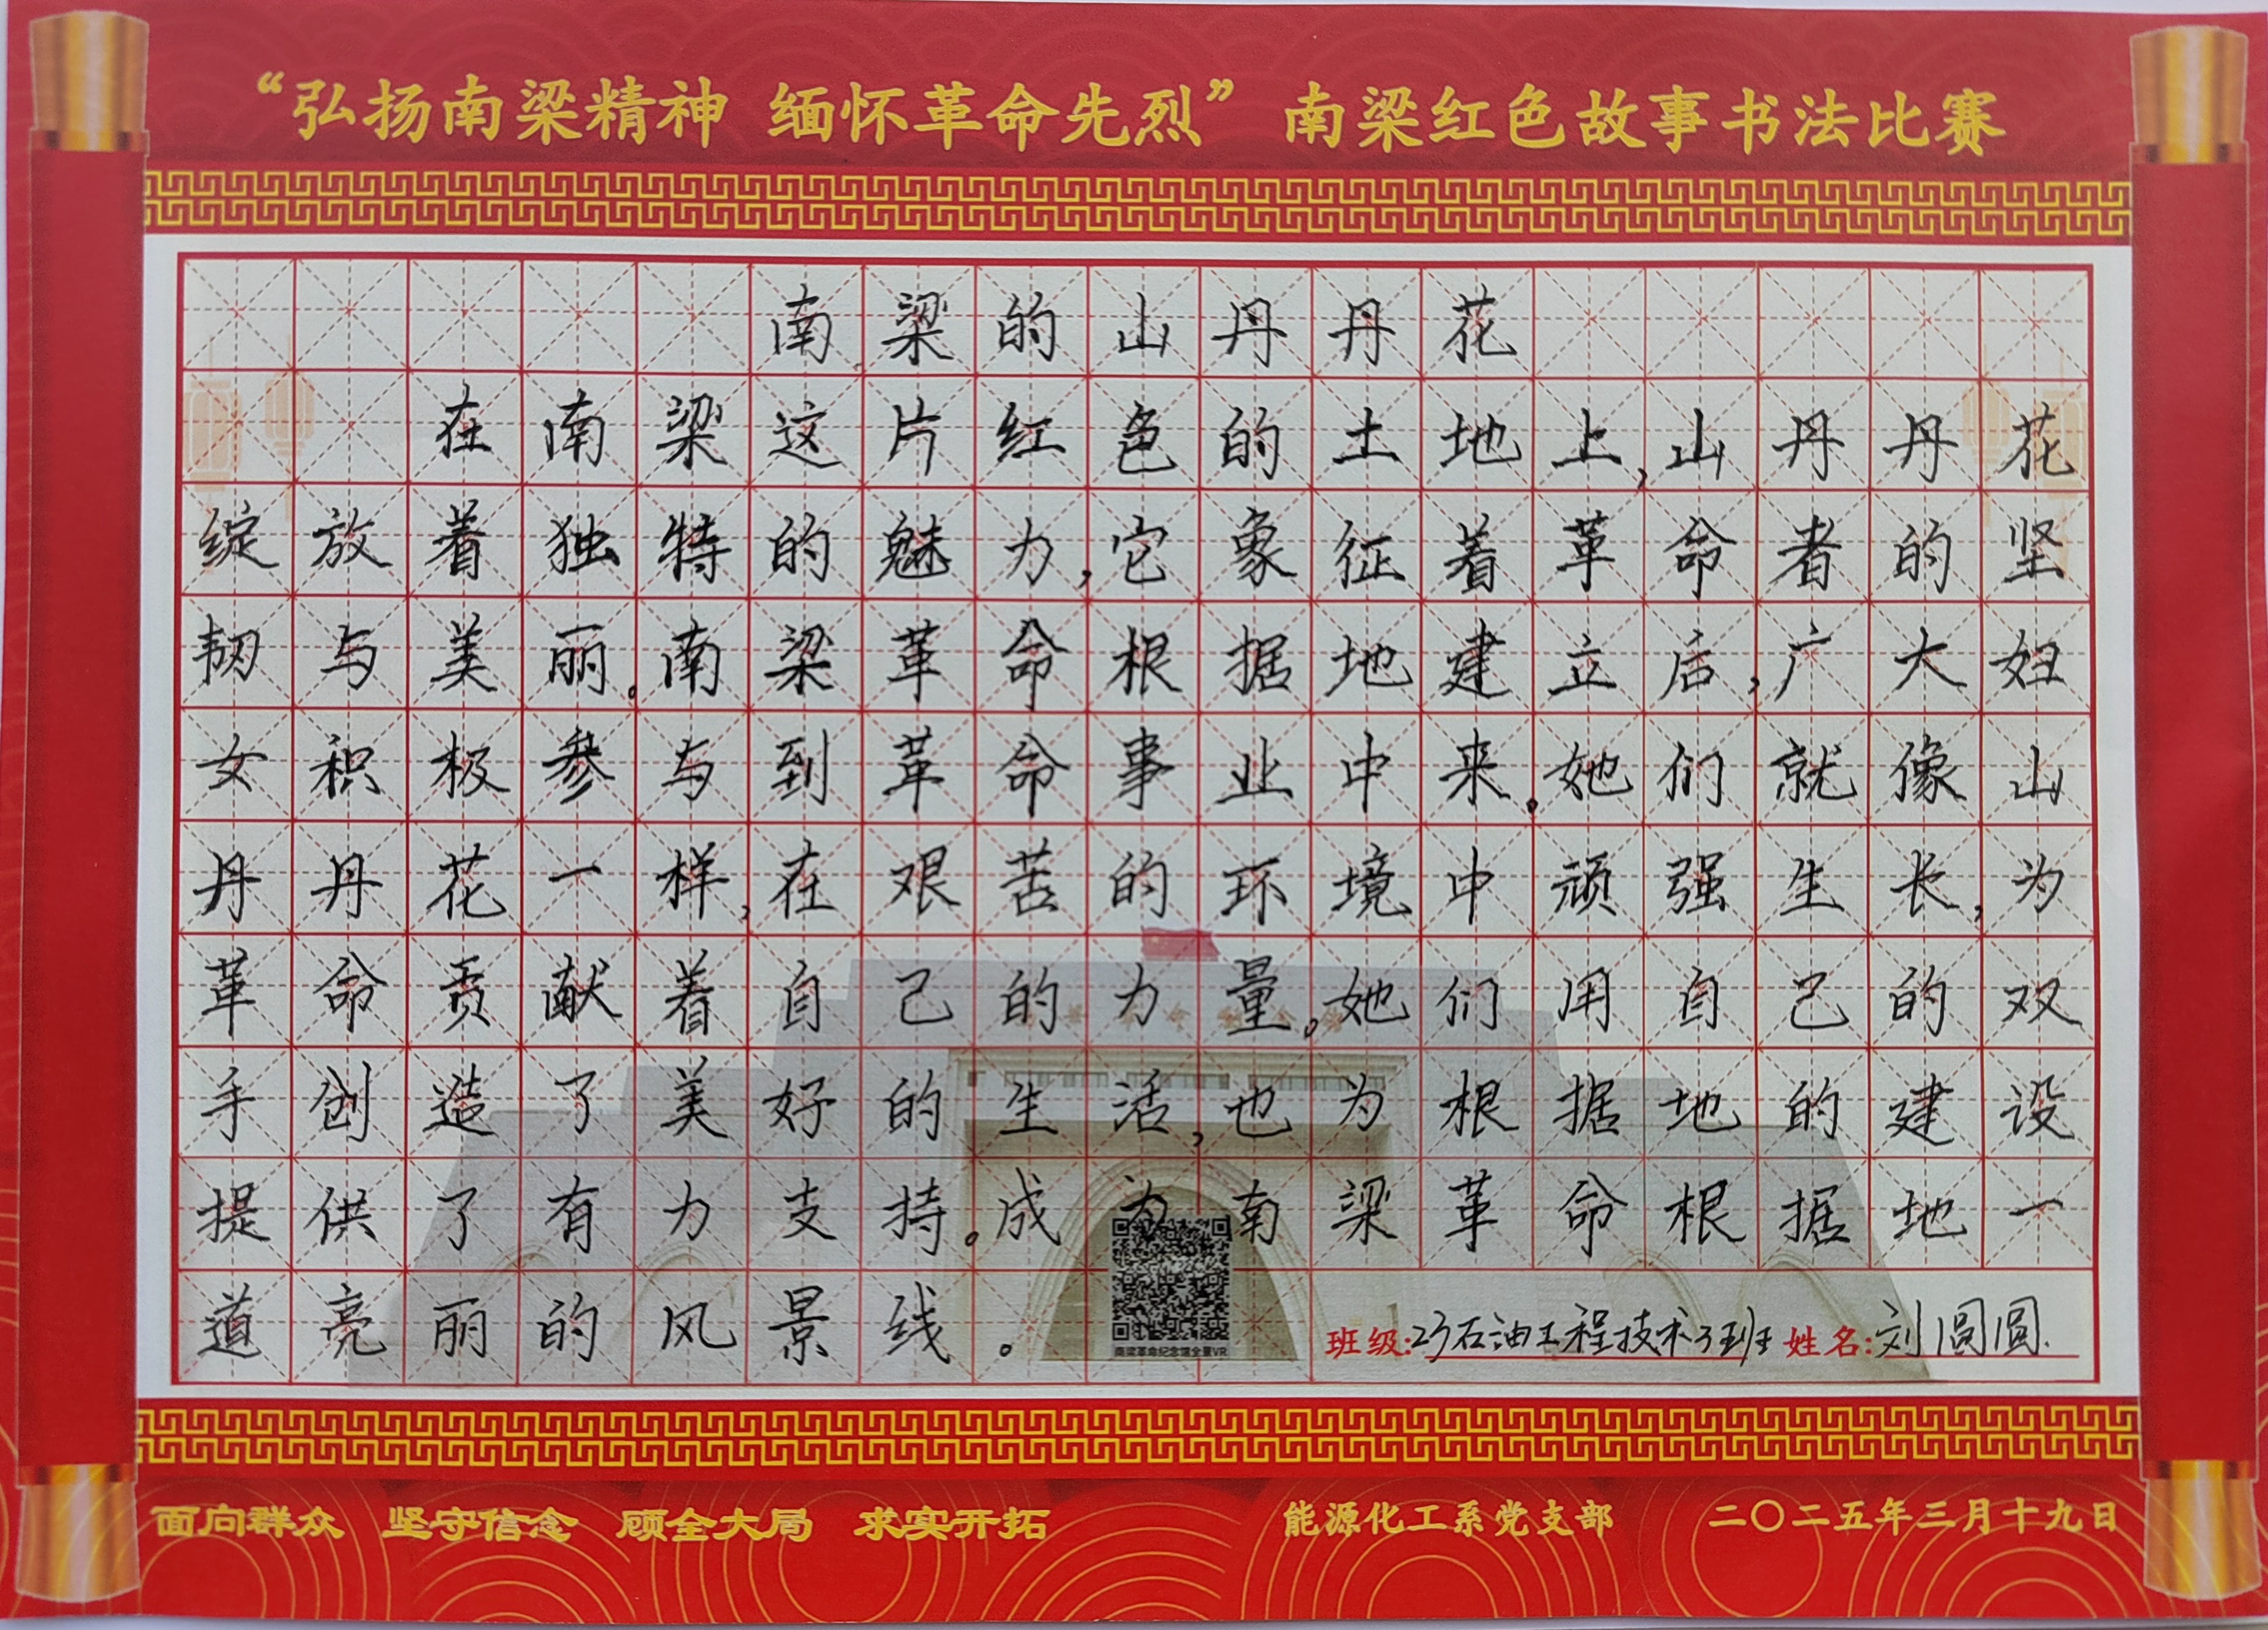 “弘扬南梁精神 缅怀革命先烈”南梁红色故事书法比赛
南梁的山丹丹花
在南梁这片红色的土地上,山丹丹花
绽放着独特的魅力,它象征着革命者的坚
韧与美丽。南梁革命根据地建立后,广大妇
女积极参与到革命事业中来。她们就像山
丹丹花一样,在艰苦的环境中顽强生长,为
革命贡献着自己的力量。她们用自己的双
手创造了美好的生活,也为根据地的建设
提供了有力支持。成为南梁革命根据地一
道亮丽的风景线。
南梁革命纪念馆全景VR
班级:23石油工程技术3班 姓名:刘圆圆.
面向群众 坚守信念 顾全大局 求实开拓 能源化工系党支部 二〇二五年三月十九日